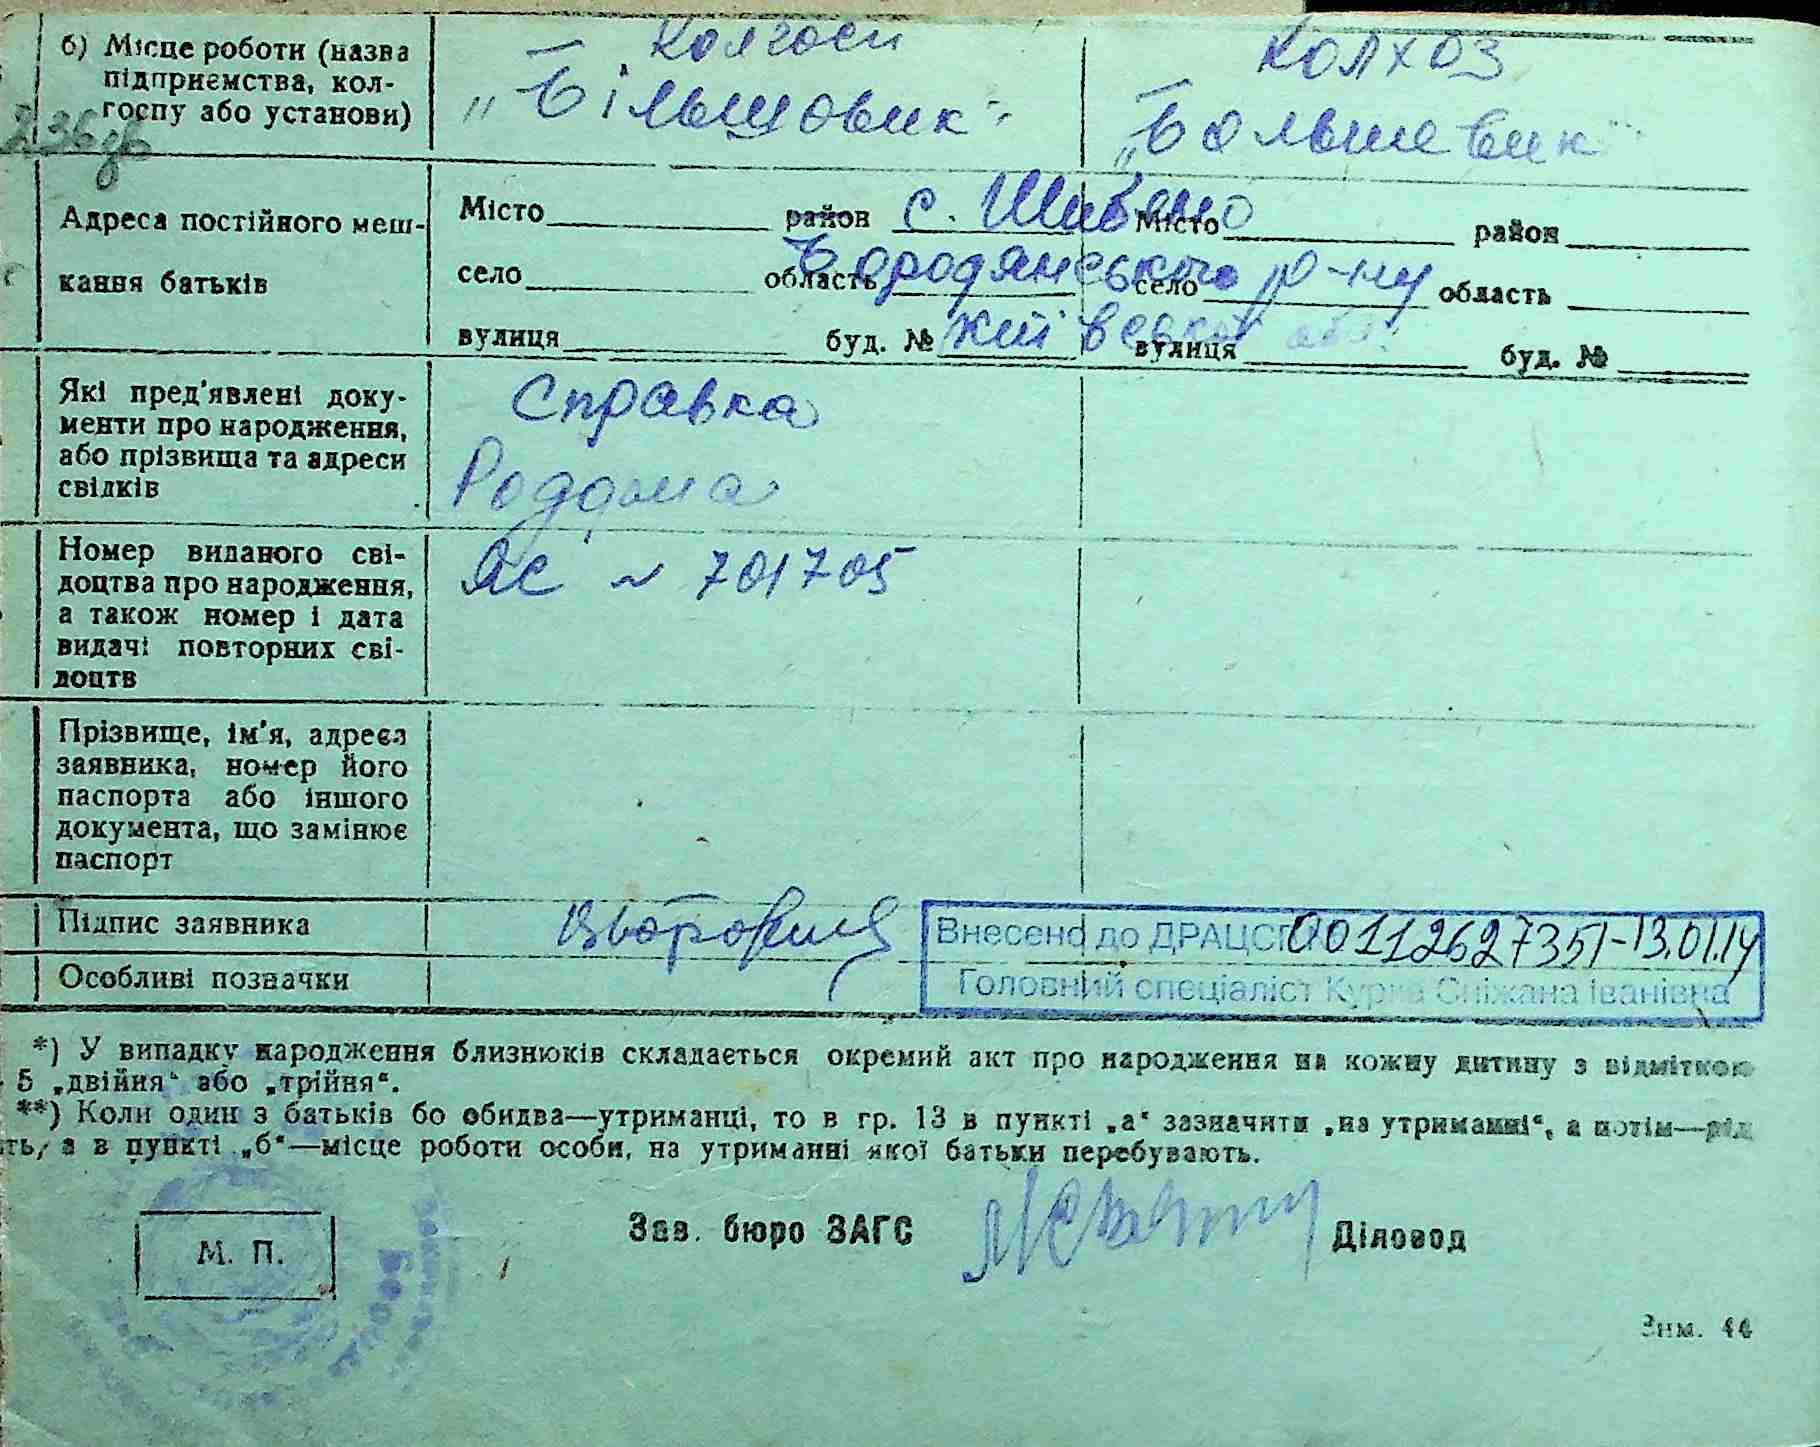 б) Місце роботи (назва підприємства, колгоспу або установи)
Колгосп
„Більшовик"
Колхоз
„Большевик"
Адреса постійного меш-
кання батьків
Місто район с. Шибено Місто район
село область Бородянського р-ну село область
вулиця буд. № Київської обл. вулиця буд. №
Які пред'явлені доку-
менти про народження,
або прізвища та адреси
свідків
Справка
Роддома
Номер виданого сві-
доцтва про народження,
а також номер і дата
видачі повторних сві-
доцтв
ЯС ~ 701705
Прізвище, ім'я, адреса
заявника, номер його
паспорта або іншого
документа, що замінює
паспорт
Підпис заявника
Внесено до ДРАЦСГ 00112627351-13.01.14
Головний спеціаліст Курка Сніжана Іванівна
Особливі позначки
*) У випадку народження близнюків складається окремий акт про народження на кожну дитину з відміткою
5 „двійня“ або „трійня“.
**) Коли один з батьків бо обидва—утриманці, то в гр. 13 в пункті „а“ зазначити „на утриманні“, а потім—рід
ть, а в пункті „б“—місце роботи особи, на утриманні якої батьки перебувають.
М. П.
Зав. бюро ЗАГС
Діловод
Зим. 44